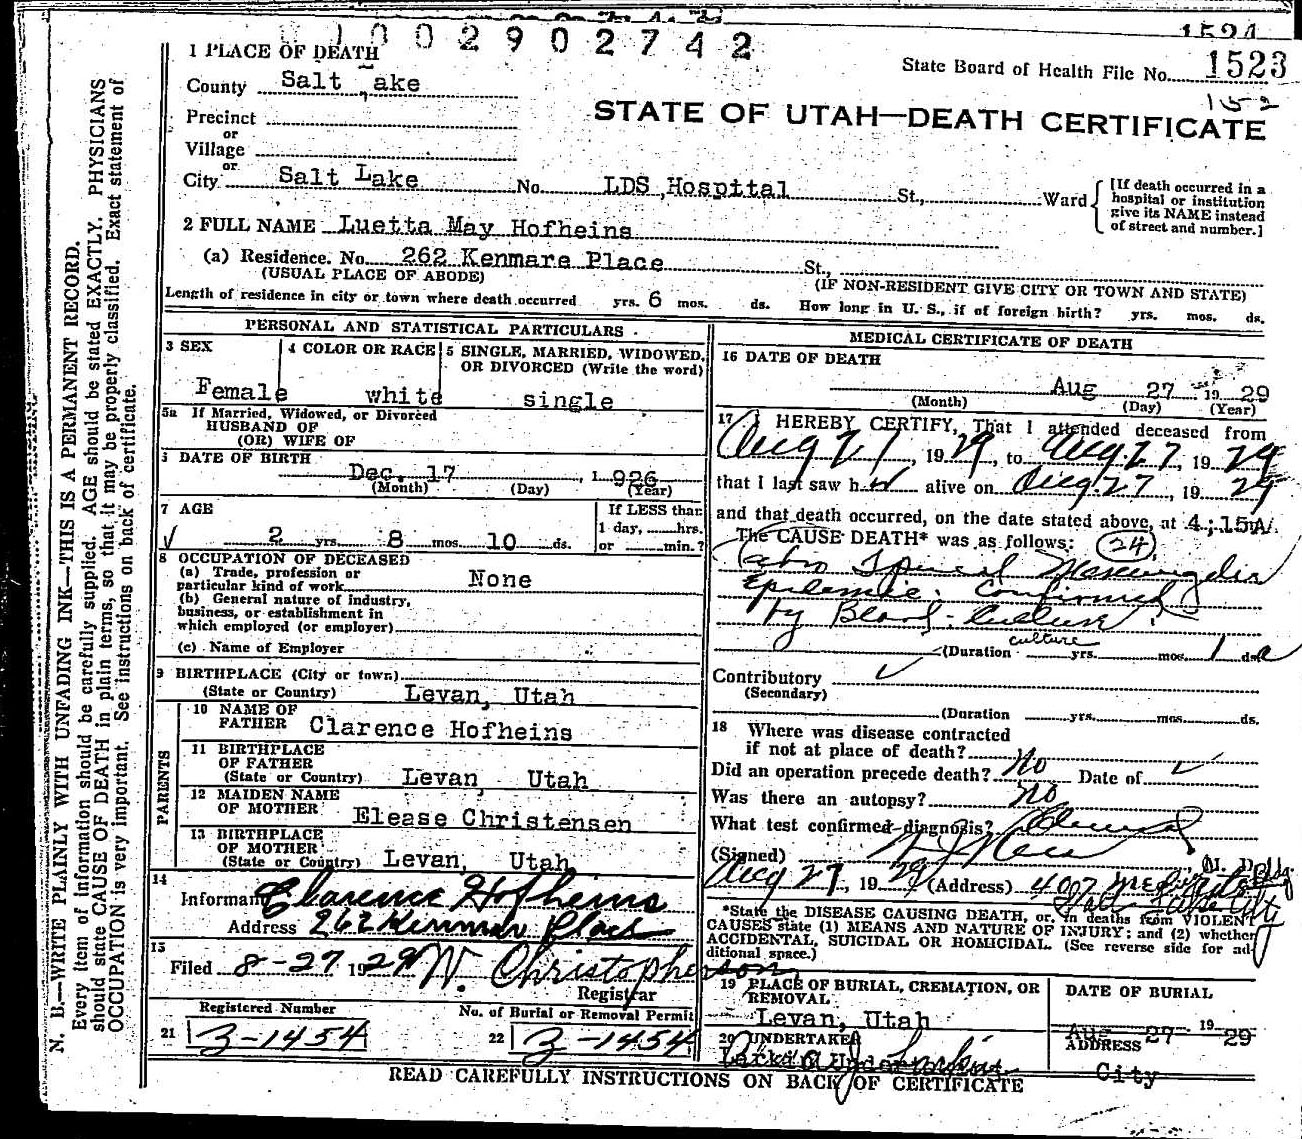 1524
1 0 0 2 9 0 2 7 4 2
1 PLACE OF DEATH
State Board of Health File No. 1523
152
County Salt Lake
STATE OF UTAH—DEATH CERTIFICATE
Precinct
or
Village
or
City Salt Lake No. LDS Hospital St., Ward {[If death occurred in a hospital or institution give its NAME instead of street and number.]
2 FULL NAME Luetta May Hofheins
(a) Residence. No. 262 Kenmare Place St.,
(USUAL PLACE OF ABODE) (IF NON-RESIDENT GIVE CITY OR TOWN AND STATE)
Length of residence in city or town where death occurred yrs. 6 mos. ds. How long in U. S., if of foreign birth? yrs. mos. ds.
PERSONAL AND STATISTICAL PARTICULARS
3 SEX
Female
4 COLOR OR RACE
white
5 SINGLE, MARRIED, WIDOWED, OR DIVORCED (Write the word)
single
5a If Married, Widowed, or Divorced
HUSBAND OF
(OR) WIFE OF
DATE OF BIRTH
Dec. 17, 1926
(Month) (Day) (Year)
7 AGE
2 yrs. 8 mos. 10 ds.
If LESS than
1 day, hrs.
or min.?
8 OCCUPATION OF DECEASED
(a) Trade, profession or
particular kind of work None
(b) General nature of industry,
business, or establishment in
which employed (or employer)
(c) Name of Employer
9 BIRTHPLACE (City or town)
(State or Country) Levan, Utah
PARENTS
10 NAME OF
FATHER Clarence Hofheins
11 BIRTHPLACE
OF FATHER
(State or Country) Levan Utah
12 MAIDEN NAME
OF MOTHER Elease Christensen
13 BIRTHPLACE
OF MOTHER
(State or Country) Levan, Utah
14
Informant Clarence Hofheins
Address 262 Kenmare Place
15
Filed 8-27 1929 W. Christopherson
Registrar
Registered Number
21 3-1454
No. of Burial or Removal Permit
22 3-1454
MEDICAL CERTIFICATE OF DEATH
16 DATE OF DEATH
Aug 27 1929
(Month) (Day) (Year)
17 I HEREBY CERTIFY, That I attended deceased from
Aug 27, 1929, to Aug. 27, 1929
that I last saw h alive on Aug. 27, 1929
and that death occurred, on the date stated above, at 4:15A.
The CAUSE DEATH* was as follows: 24
Epidemic. Confirmed
by Blood-Culture.
culture
(Duration yrs. mos. 1 ds.
Contributory
(Secondary)
(Duration yrs. mos. ds.
18 Where was disease contracted
if not at place of death?
Did an operation precede death? No Date of
Was there an autopsy? No
What test confirmed diagnosis?
(Signed)
Aug 27, 1929 (Address) 407
*State the DISEASE CAUSING DEATH, or, in deaths from VIOLENT
CAUSES state (1) MEANS AND NATURE OF INJURY; and (2) whether
ACCIDENTAL, SUICIDAL OR HOMICIDAL. (See reverse side for additional space.)
19 PLACE OF BURIAL, CREMATION, OR
REMOVAL
Levan, Utah
DATE OF BURIAL
Aug 27 1929
20 UNDERTAKER
ADDRESS
City
READ CAREFULLY INSTRUCTIONS ON BACK OF CERTIFICATE
N. B.—WRITE PLAINLY WITH UNFADING INK—THIS IS A PERMANENT RECORD.
Every item of information should be carefully supplied. AGE should be stated EXACTLY. PHYSICIANS
should state CAUSE OF DEATH in plain terms, so that it may be properly classified. Exact statement of
OCCUPATION is very important. See instructions on back of certificate.